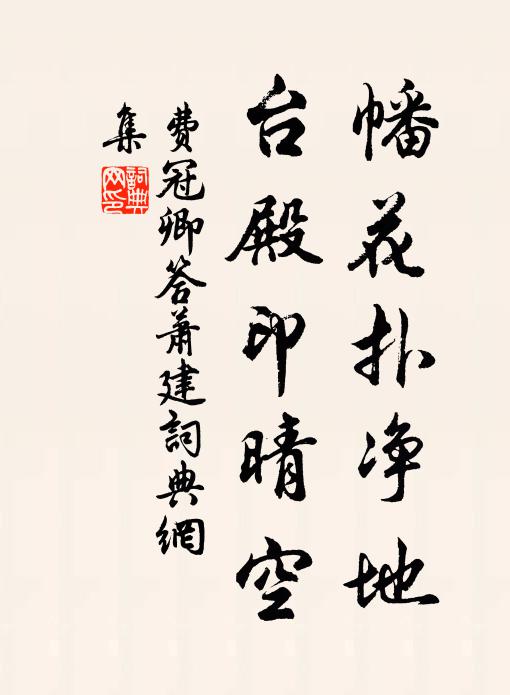 幡花扑净地
台殿印晴空
费冠卿答萧建詞典網
集
詞典
网印